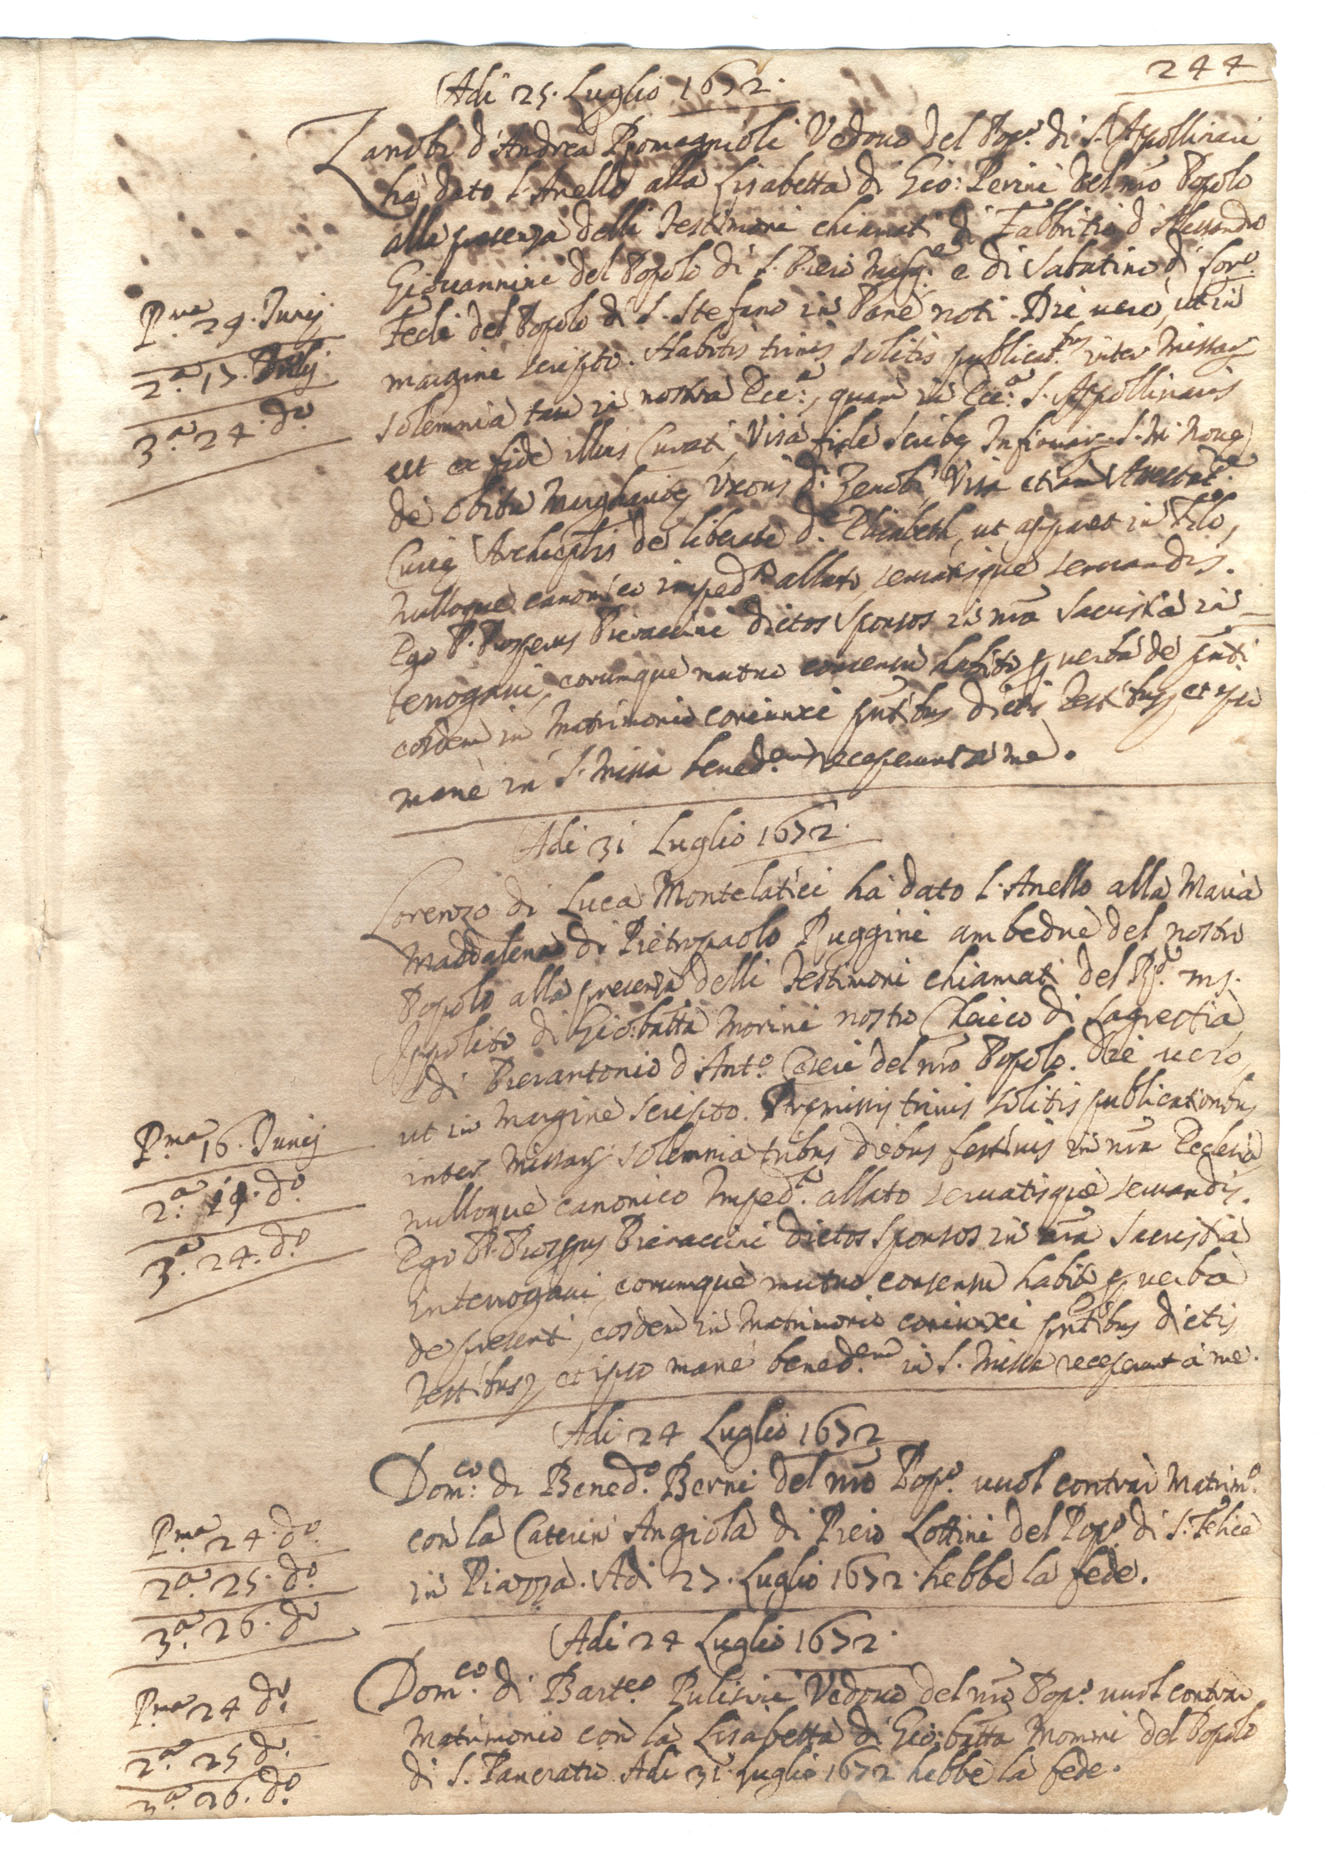 244
Adi 25. Luglio 1672.
Zanobi d'Andrea Romagnioli Vedouo del Pop.o di S. Apollinari
ha dato l'Anello alla Lisabetta di Gio: Perini del nro Popolo
alla presenza delli Testimoni chiamati di Fabbritio d'Alessandro
Giouannini del Popolo di S. Piero e di Sabatino di
Fedi del Popolo di S. Stefano in Pane noti. Die uero, ut in
margine scripto. Habitis trinis solitis publicat.bus inter Missar
solemnia tam in nostra Ecc.a, quam in Ecc.a S. Appollinaris
ut ex fide illius Curati, Visa fide Scribę Infirmar. S. M. Nouę
de obitu Margheritę Vxoris d.i Zenobi, Visa etiam
Curię Archiep.lis de libertate d. Elisabeth, ut apparet in Filo,
nulloque canonico imped.to allato, seruatisque seruandis.
Ego P. Prosperus Pieraccini dictos Sponsos in nra Sacristia in=
terrogaui, eorumque mutuo consensu habito p uerba de pnti
eosdem in Matrimonio coniunxi pntibus dictis Testibus, et ipso
mane in S. Missa bened.em receperunt a me.
P.ma 29. Junij
2.a 17. Julij
3.a 24. d.o
Adi 31 Luglio 1672.
Lorenzo di Luca Montelatici ha dato l'Anello alla Maria
Maddalena di Pietropaolo Ruggini ambedue del nostro
Popolo alla presenza delli Testimoni chiamati del R.do ms.
Ippolito di Gio:batta Morini nostro Cherico di Sagrestia,
e di Pierantonio d'Ant.o Caseri del nro Popolo. Die uero,
ut in margine scripto. Premissis trinis solitis publicationibus
inter Missar solemnia tribus diebus festiuis in nra Ecclesia,
nulloque canonico imped.to allato seruatisque seruandis.
Ego P. Prosperus Pieraccini dictos Sponsos in nra Sacristia
interrogaui, eorumque mutuo consensu habito p uerba
de presenti, eosdem in Matrimonio coniunxi pntibus dictis
Testibus, et ipso mane bened.em in S. Missa receperunt a me.
P.ma 16. Junij
2.a 19. d.o
3.a 24. d.o
Adi 24 Luglio 1672
Dom.co di Bened.o Berni del nro Pop.o uuol contrar Matrim.o
con la Caterin' Angiola di Piero Lottini del Pop.o di S. Felice
in Piazza. Adi 27. Luglio 1672. hebbe la fede.
P.ma 24. d.o
2.a 25. d.o
3.a 26. d.o
Adi 24 Luglio 1672.
Dom.co di Bart.eo Pulisini Vedouo del nro Pop.o uuol contrar
Matrimonio con la Lisabetta di Gio:batta Momni del Popolo
di S. Pancratio Adi 31. Luglio 1672 hebbe la fede.
P.ma 24 d.o
2.a 25 d.o
3.a 26. d.o